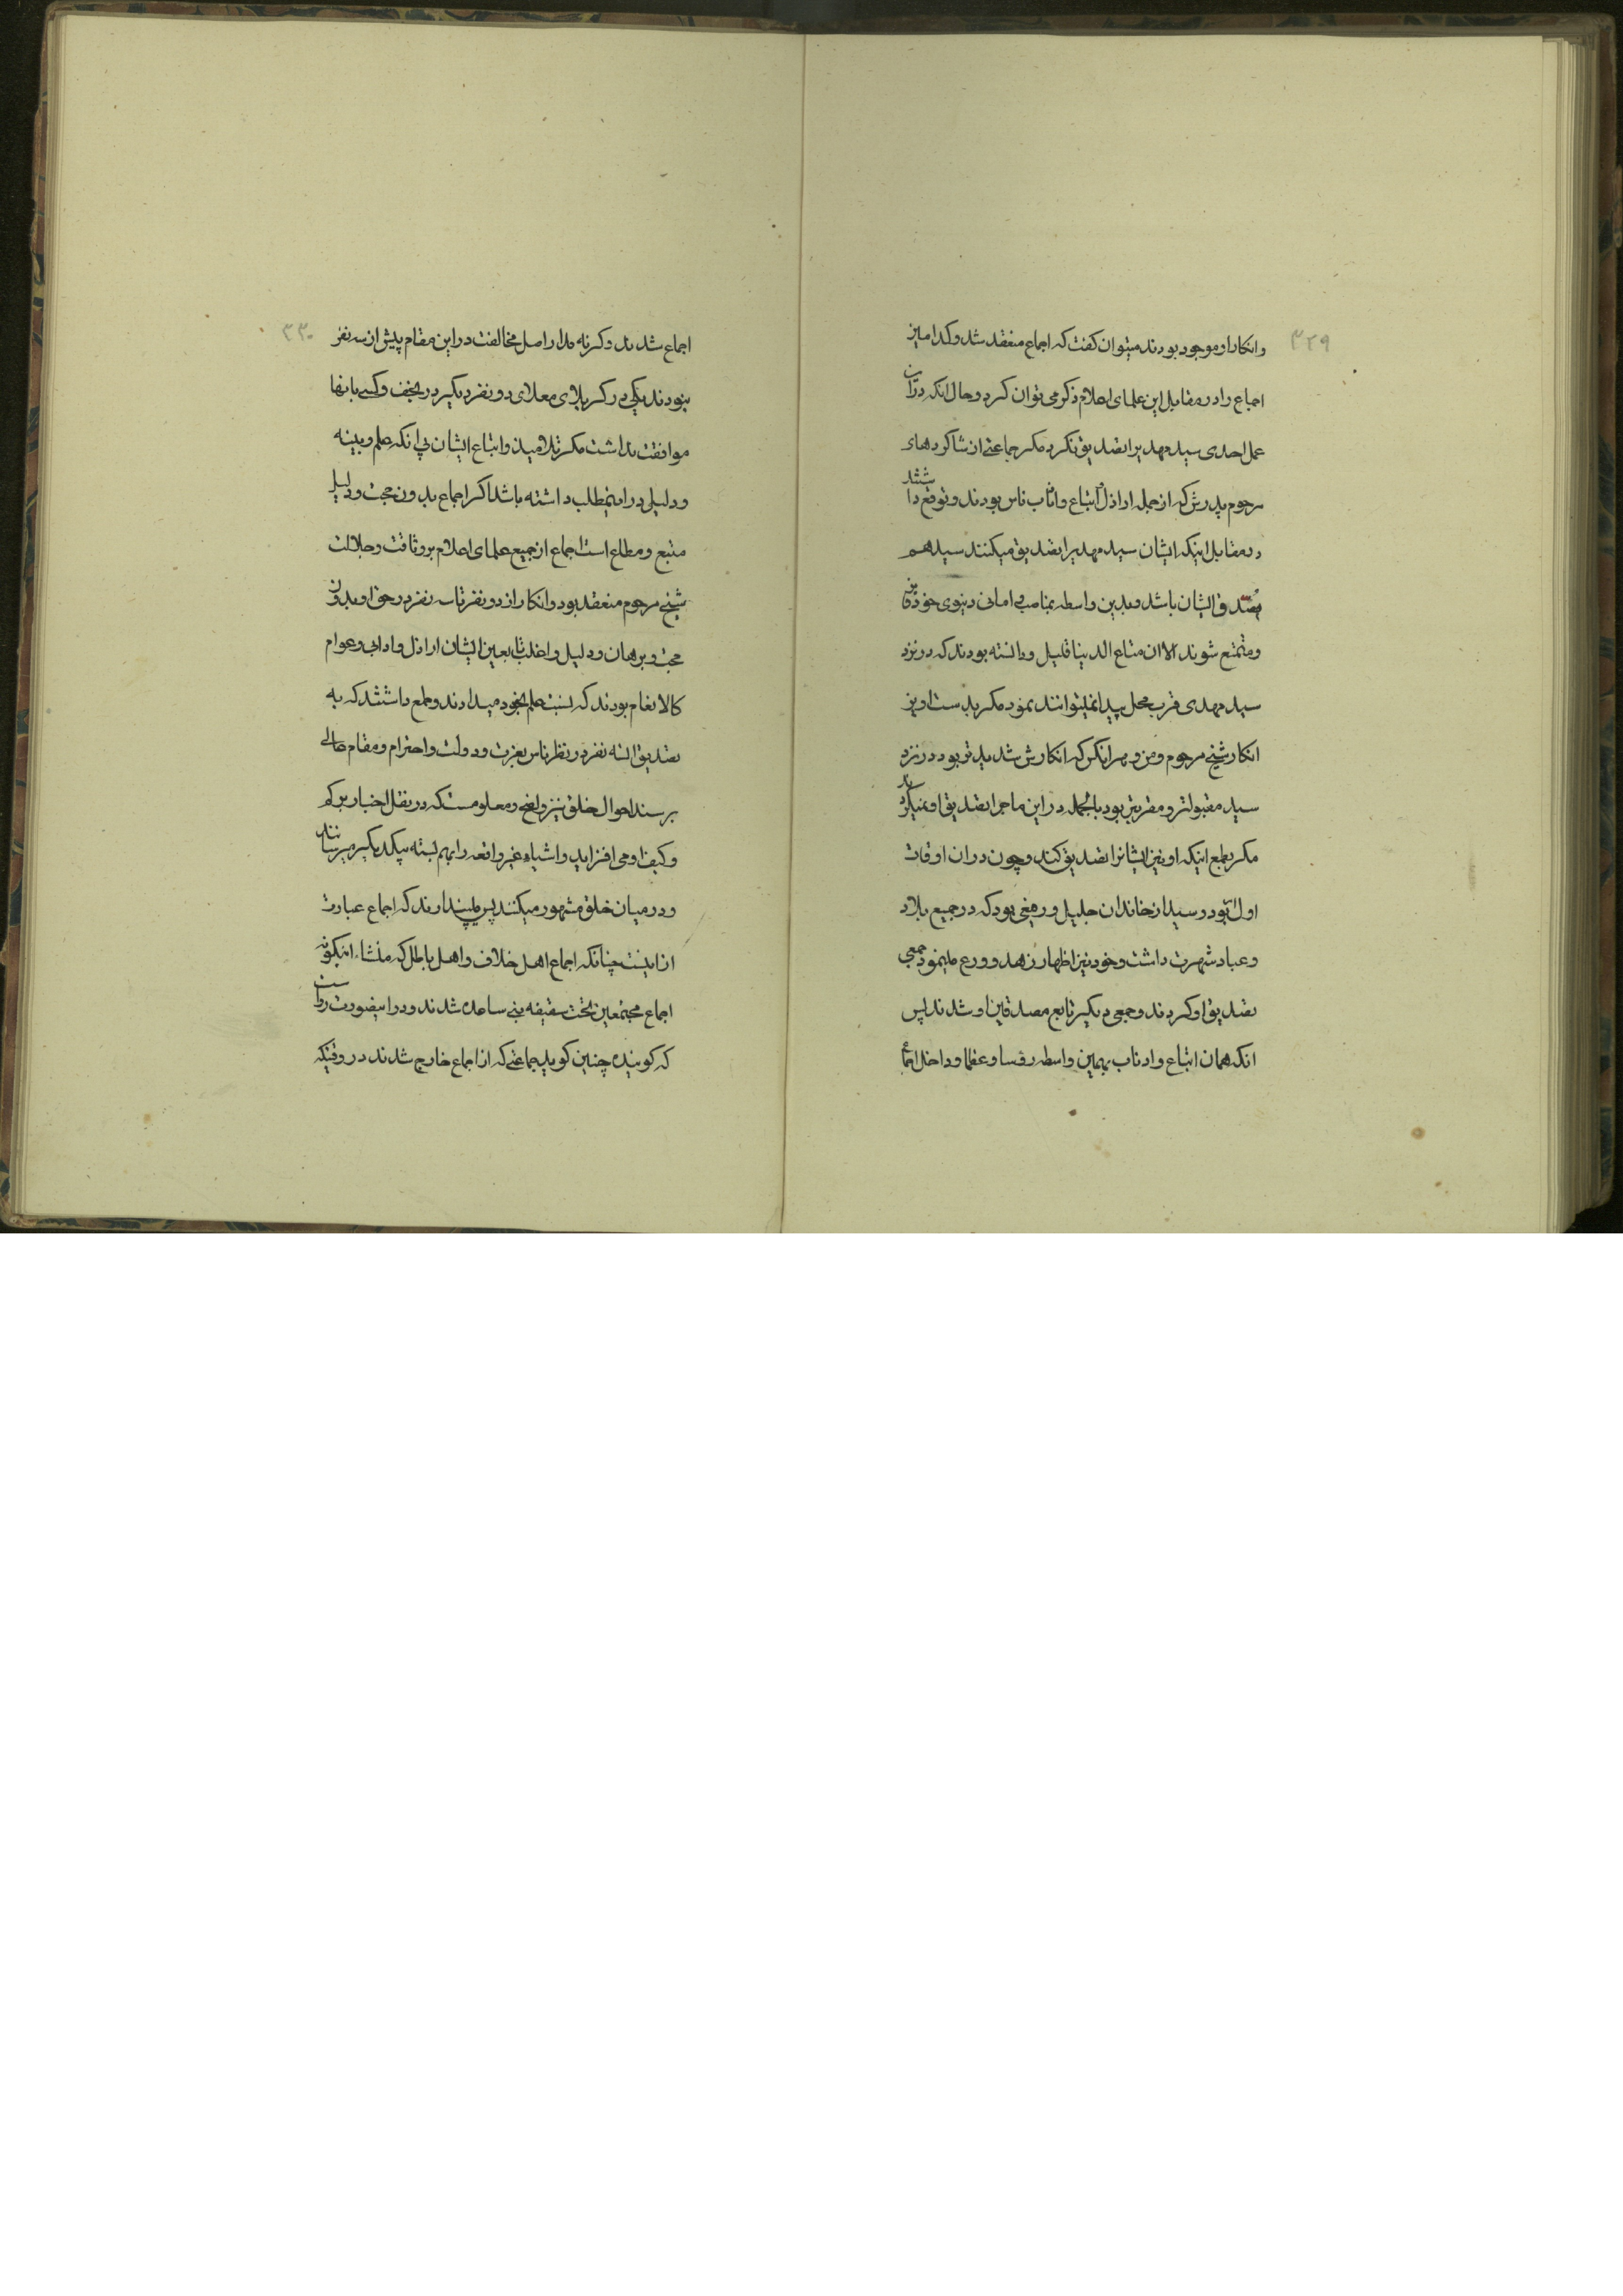 ۳۲۹
وانکار او موجود بودند میتوان کفت که اجماع منعقد شد وکدامین
اجماع را در مقابل این علمای اعلام ذکر می توان کرد وحال انکه در ان
عمل احدی سید مهدیرا تصدیق نکرد مکر جماعتی از شاکردهای
مرحوم پدرش که از جمله اراذل واتباع واذناب ناس بودند وتوقع داشتند
در مقابل اینکه ایشان سید مهدیرا تصدیق میکنند سید هم
مصدق ایشان باشد وبدین واسطه بمناصب وامانی دنیوی خود فایز
ومتمتع شوند الا ان متاع الدنیا قلیل ودانسته بودند که در نزد
سید مهدی قرب محل پیدا نمیتوانند نمود مکر بدست اویز
انکار شیخ مرحوم ومن وهر انکس که انکارش شدیدتر بود در نزد
سید مقبولتر ومقربتر بود بالجمله در این ماجرا تصدیق او نمیکردند
مکر بطمع اینکه او نیز ایشانرا تصدیق کند وچون در ان اوقات
اول بود وسید از خاندان جلیل ورفیعی بود که در جمیع بلاد
وعباد شهرت داشت وخود نیز اظهار زهد وورع مینمود جمعی
تصدیق او کردند وجمعی دیکر تابع مصدقین او شدند پس
انکه همان اتباع واذناب بهمین واسطه رؤسا وعظما وداخل اجماع
۳۳۰
اجماع شدند وکرنه مدار اصل مخالفت در این مقام بیش از سه نفر
نبودند یکی در کربلای معلای دو نفر دیکر در نجف وکسی بانها
موافقت نداشت مکر تلامیذ واتباع ایشان بی انکه علم وبینه
ودلیلی در اینمطلب داشته باشد اکر اجماع بدون حجت ودلیل
متبع ومطاع است اجماع از جمیع علمای اعلام بر وثاقت وجلالت
شیخ مرحوم منعقد بود وانکار از دو نفر تا سه نفر در حق او بدون
حجت وبرهان ودلیل واغلب تابعین ایشان اراذل وادانی وعوام
کالانعام بودند که نسبت علم بخود میدادند وطمع داشتند که به
تصدیق الثه نفر در نظر ناس بعزت ودولت واحترام ومقام عالی
برسند احوال خلق نیز واضح ومعلومست که در نقل اخبار بر کم
وکیف او می افزاید واشیاء غیر واقعه را بهم بسته بیکدیکر میرسانند
ودر میان خلق مشهور میکنند پس میپندارند که اجماع عبارت
از اینست چنانکه اجماع اهل خلاف واهل باطل که منشاء اینکونه
اجماع مجتمعین تحت سقیفه بنی ساعده شدند ودر اینصورت رواست
که کوینده چنین کوید جماعتی که از اجماع خارج شدند در وقتیکه